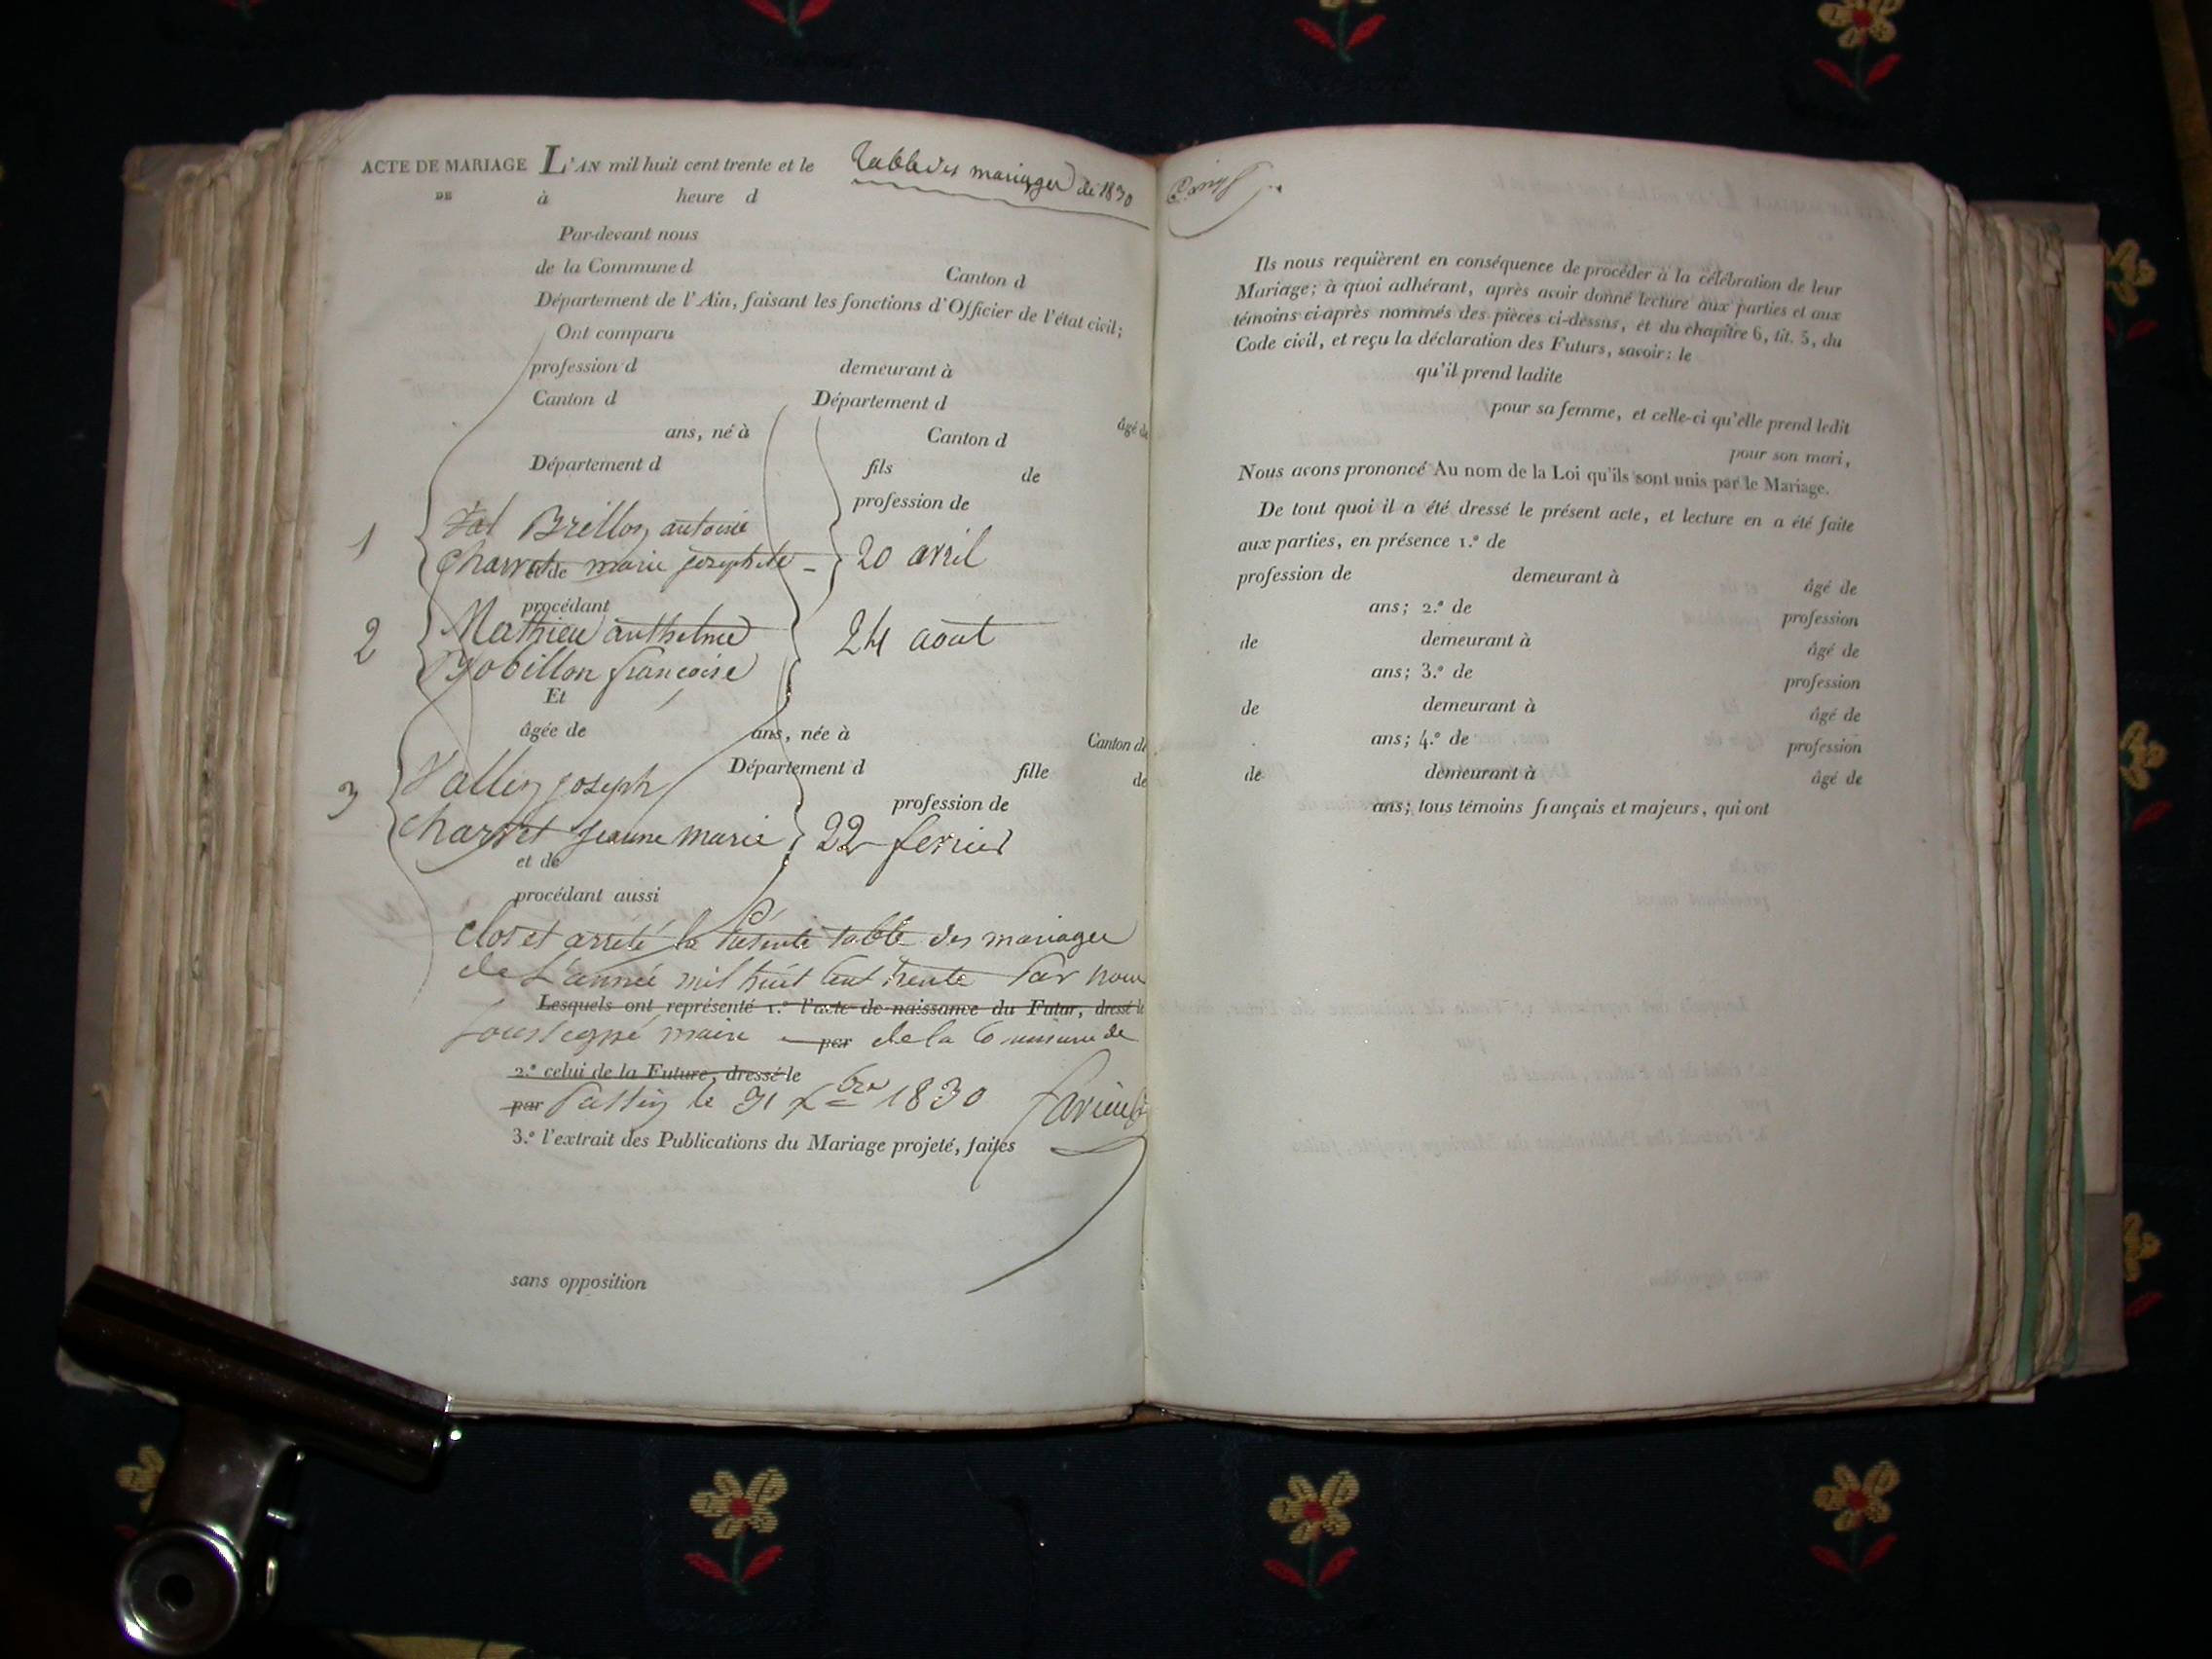 ACTE DE MARIAGE L'AN mil huit cent trente et le
Table des mariages de 1830
DE à heure d
Par-devant nous
de la Commune d Canton d
Département de l'Ain, faisant les fonctions d'Officier de l'état civil;
Ont comparu
profession d demeurant à
Canton d Département d
âgé de
ans, né à Canton d
Département d fils de
profession de
1 Brillon antoine
Charvet marie josephte 20 avril
et de
procédant
2 Mathieu anthelme 24 aout
Bobillon francoise
Et
âgée de ans, née à Canton de
Département d fille de
3 Vallin joseph
profession de
Charvet jeanne marie 22 fevrier
et de
procédant aussi
clos et arreté la presente table des mariages
de L'année mil huit cent trente Par nous
Lesquels ont représenté 1.º l'acte de naissance du Futur, dressé le
soussigné maire par de la Commune de
2.º celui de la Future, dressé le
par le 31 Xbre 1830
3.º l'extrait des Publications du Mariage projeté, faites
sans opposition
Ils nous requièrent en conséquence de procéder à la célébration de leur
Mariage; à quoi adhérant, après avoir donné lecture aux parties et aux
témoins ci-après nommés des pièces ci-dessus, et du chapitre 6, tit. 5, du
Code civil, et reçu la déclaration des Futurs, savoir: le
qu'il prend ladite
pour sa femme, et celle-ci qu'elle prend ledit
pour son mari,
Nous avons prononcé Au nom de la Loi qu'ils sont unis par le Mariage.
De tout quoi il a été dressé le présent acte, et lecture en a été faite
aux parties, en présence 1.º de
profession de demeurant à âgé de
ans; 2.º de profession
de demeurant à âgé de
ans; 3.º de profession
de demeurant à âgé de
ans; 4.º de profession
de demeurant à âgé de
ans; tous témoins français et majeurs, qui ont